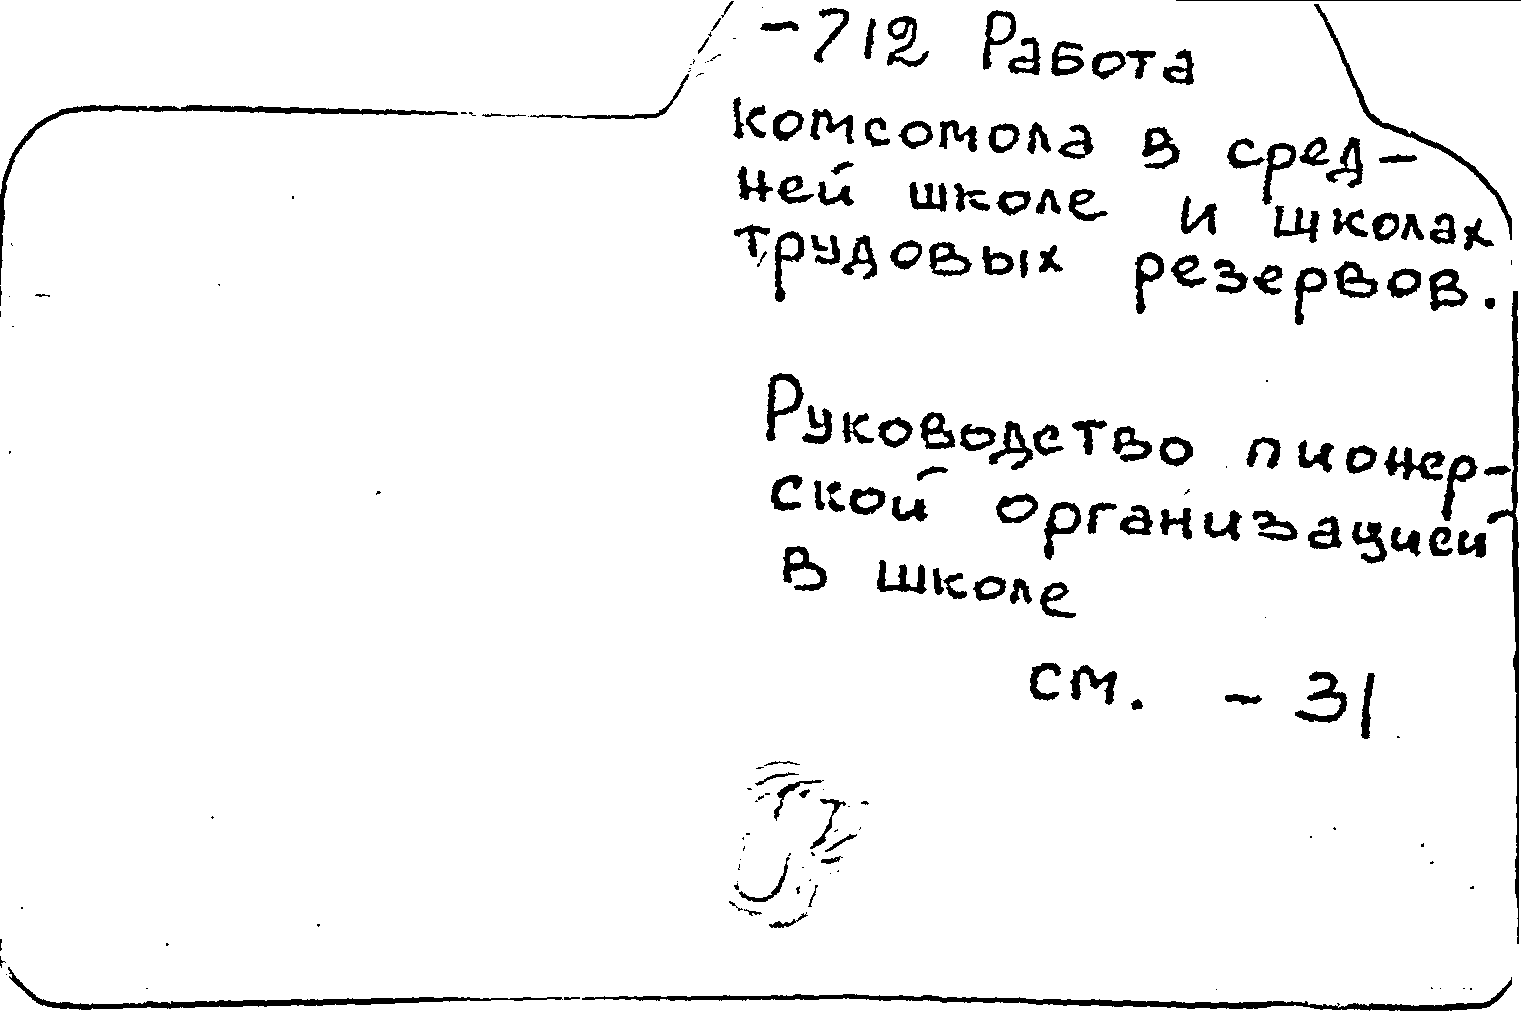 -712 Работа
комсомола в сред-
ней школе и школах
трудовых резервов.
Руководство пионер-
ской организацией
в школе
см. - 31